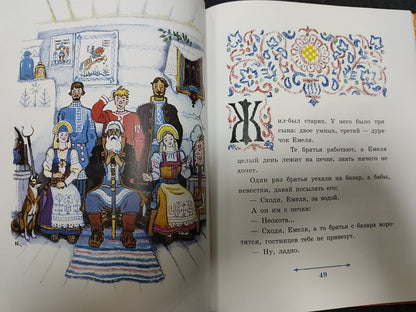 Жил-был старик. У него было три
сына: двое умных, третий — дура-
чок Емеля.
Те братья работают, а Емеля
целый день лежит на печке, знать ничего не
хочет.
Один раз братья уехали на базар, а бабы,
невестки, давай посылать его:
— Сходи, Емеля, за водой.
А он им с печки:
— Неохота...
— Сходи, Емеля, а то братья с базара воро-
тятся, гостинцев тебе не привезут.
— Ну, ладно.
49